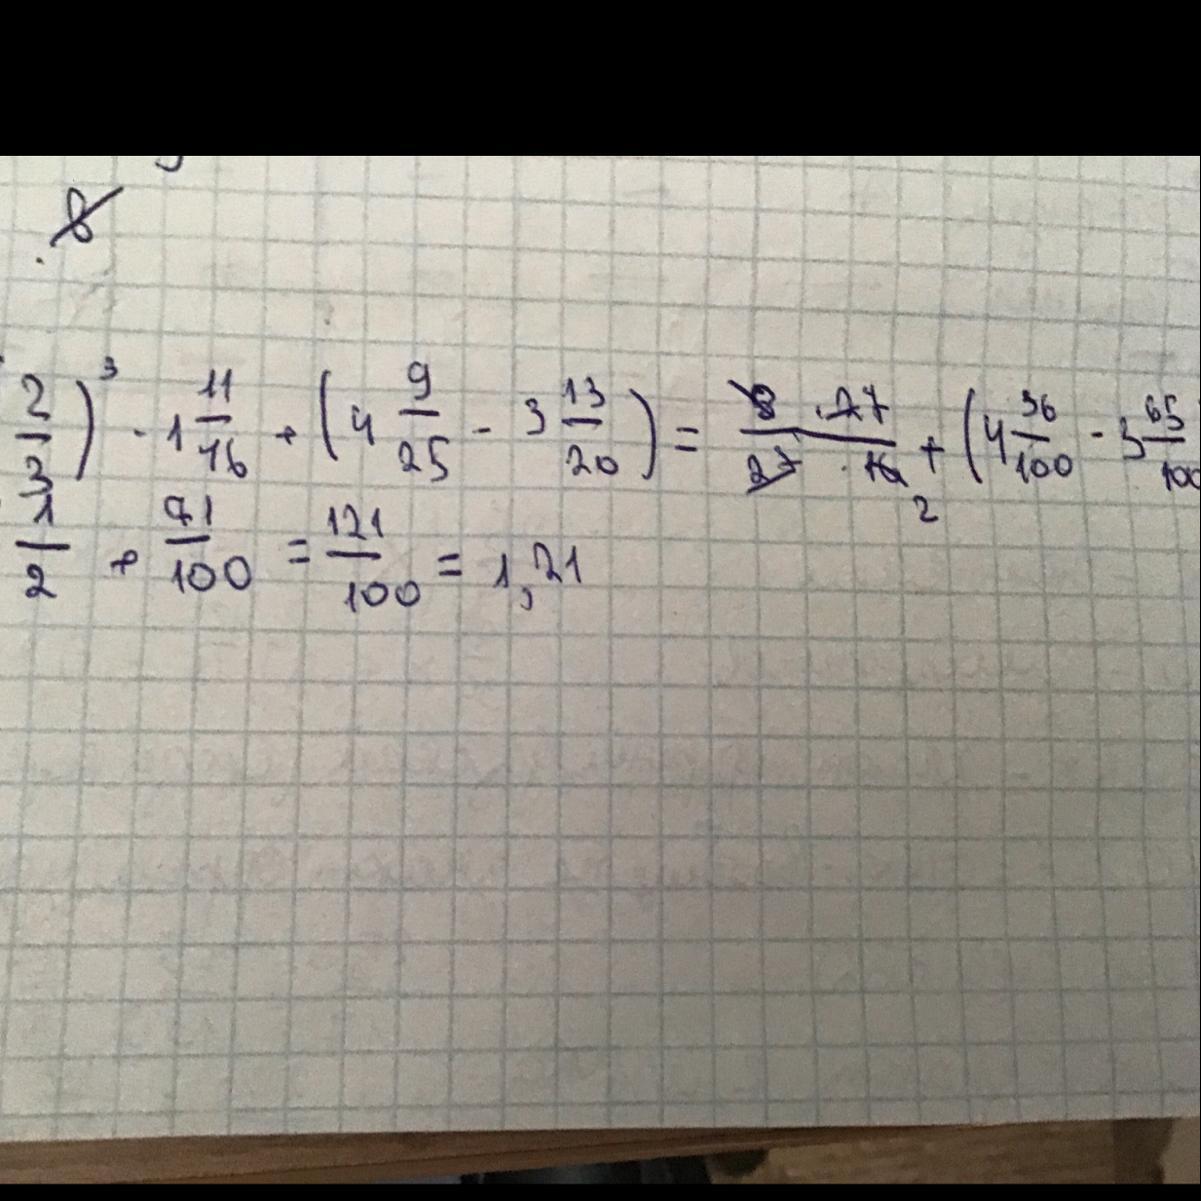 8
(2/3)³ · 1 11/16 + (4 9/25 - 3 13/20) = 8 · 27/27 · 16 2 + (4 36/100 - 3 65/100
1/2 + 71/100 = 121/100 = 1,21